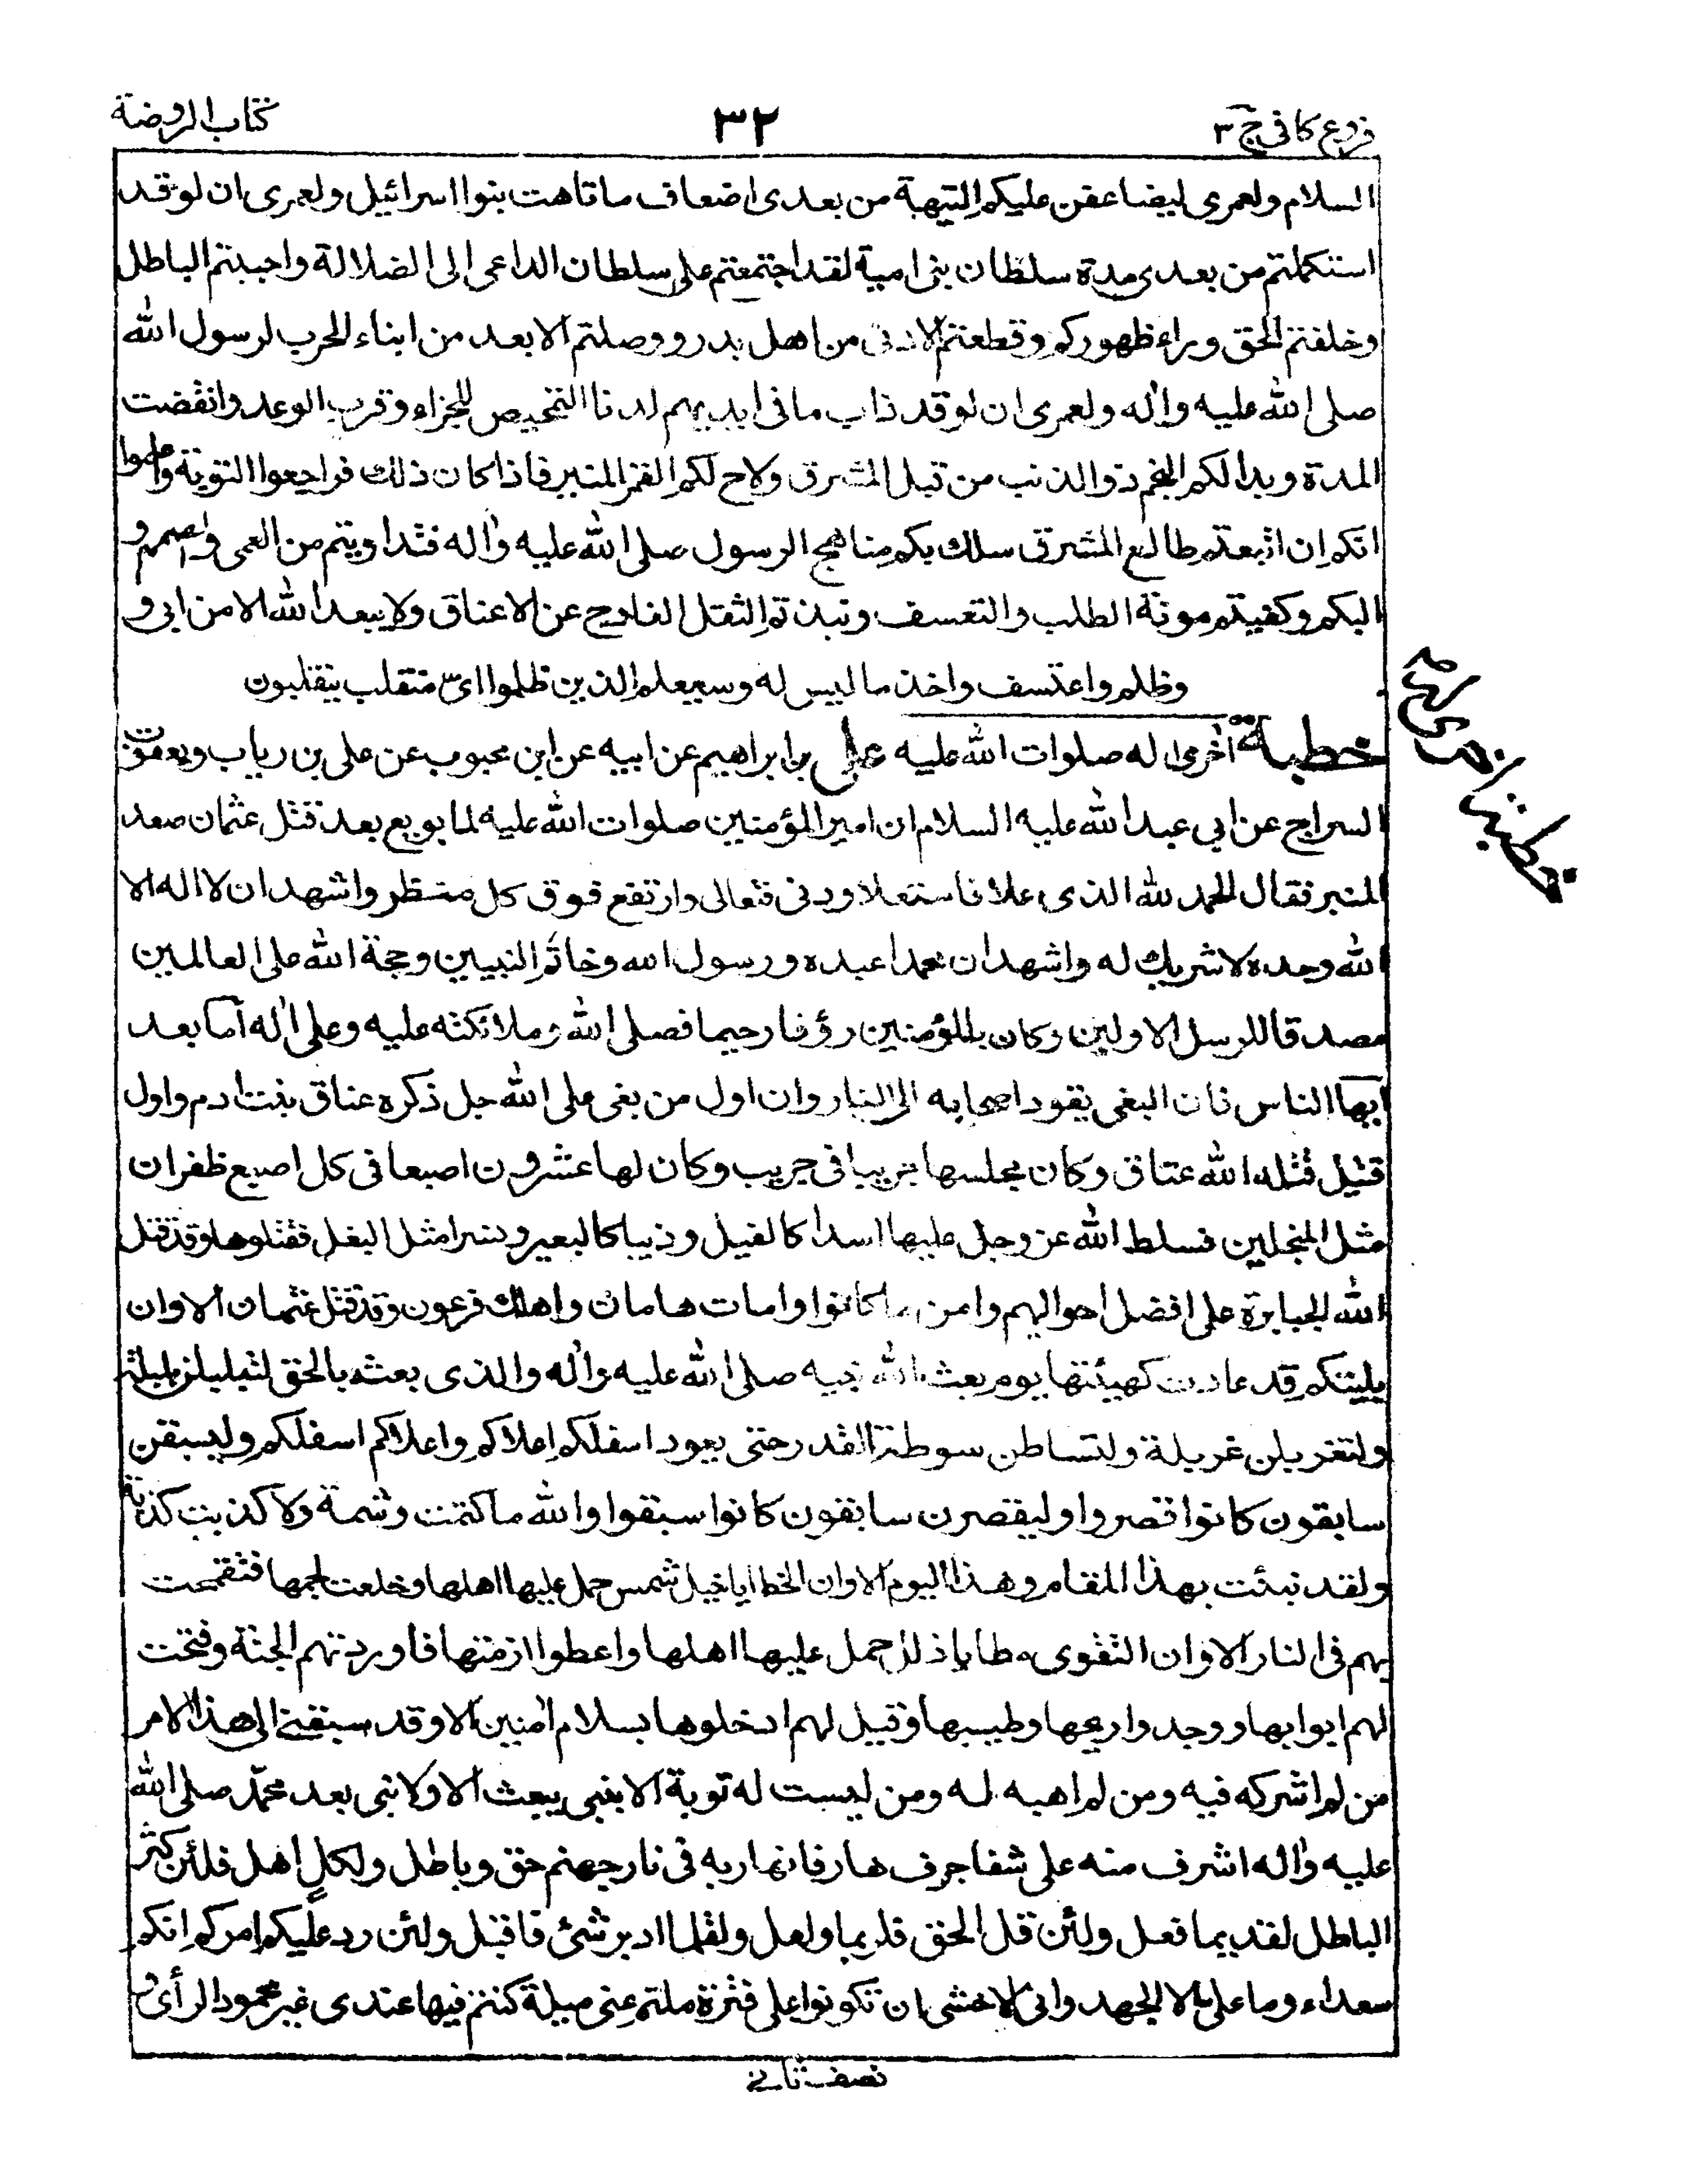 فروع كافى ج ٣
٣٢
كتاب الروضة
السلام ولعمرى ليضاعفن عليكم التيهة من بعدى اضعاف ما تاهت بنوا اسرائيل ولعمرى ان لو قد
استكملتم من بعدى مدة سلطان بنى امية لقد اجتمعتم على سلطان الداعى الى الضلالة واحييتم الباطل
وخلفتم الحق وراء ظهوركم وقطعتم الادنى من اهل بدر ووصلتم الابعد من ابناء الحرب لرسول الله
صلى الله عليه واله ولعمرى ان لو قد ذاب ما فى ايديهم لدنا التمحيص للجزاء وقرب الوعد وانقضت
المدة وبدا لكم النجم ذو الذنب من قبل المشرق ولاح لكم القمر المنير فاذا كان ذلك فراجعوا التوبة واعلموا
انكم ان اتبعتم طالع المشرق سلك بكم مناهج الرسول صلى الله عليه واله فتداويتم من العمى والصمم و
البكم وكفيتم مونة الطلب والتعسف ونبذتم الثقل الفادح عن الاعناق ولا يبعد الله الا من ابى و
وظلم واعتسف واخذ ما ليس له وسيعلم الذين ظلموا اى منقلب ينقلبون
خطبة اخرى له صلوات الله عليه على بن ابراهيم عن ابيه عن ابن محبوب عن على بن رياب ويعقوب
السراج عن ابى عبد الله عليه السلام ان امير المؤمنين صلوات الله عليه لما بويع بعد قتل عثمان صعد
المنبر فقال الحمد لله الذى علا فاستعلا ودنى فتعالى وارتفع فوق كل منظر واشهد ان لا اله الا
الله وحده لا شريك له واشهد ان محمدا عبده ورسول الله وخاتم النبيين وحجة الله على العالمين
مصدقا للرسل الاولين وكان بالمؤمنين رؤفا رحيما فصلى الله وملائكته عليه وعلى اله اما بعد
ايها الناس فان البغى يقود اصحابه الى النار وان اول من بغى على الله جل ذكره عناق بنت ادم واول
قتيل قتله الله عناق وكان مجلسها جريبا فى جريب وكان لها عشرون اصبعا فى كل اصبع ظفران
مثل المنجلين فسلط الله عز وجل عليها اسدا كالفيل وذيبا كالبعير ونسرا مثل البغل فقتلوها وقد قتل
الله الجبابرة على افضل احوالهم وامن ما كانوا وامات هامان واهلك فرعون وقد قتل عثمان الا وان
بليتكم قد عادت كهيئتها يوم بعث الله نبيه صلى الله عليه واله والذى بعثه بالحق لتبلبلن بلبلة
ولتغربلن غربلة ولتساطن سوطة القدر حتى يعود اسفلكم اعلاكم واعلاكم اسفلكم وليسبقن
سابقون كانوا قصروا وليقصرن سابقون كانوا سبقوا والله ما كتمت وشمة ولا كذبت كذبة
ولقد نبئت بهذا المقام وهذا اليوم الا وان الخطايا خيل شمس حمل عليها اهلها وخلعت لجمها فتقحمت
بهم فى النار الا وان التقوى مطايا ذلل حمل عليها اهلها واعطوا ازمتها فاوردتهم الجنة وفتحت
لهم ابوابها ووجدوا ريحها وطيبها وقيل لهم ادخلوها بسلام امنين الا وقد سبقنى الى هذا الامر
من لم اشركه فيه ومن لم اهبه له ومن ليست له توبة الا بنبى يبعث الا ولا نبى بعد محمّد صلى الله
عليه واله اشرف منه على شفا جرف هار فانهار به فى نار جهنم حق وباطل ولكل اهل فلئن كثر
الباطل لقديما فعل ولئن قل الحق فلربما ولعل ولقلما ادبر شئ فاقبل ولئن رد عليكم امركم انكم
سعداء وما على الا الجهد وانى لاخشى ان تكونوا على فترة ملتم عنى ميلة كنتم فيها عندى غير محمود الرأى و
نصف ثانى